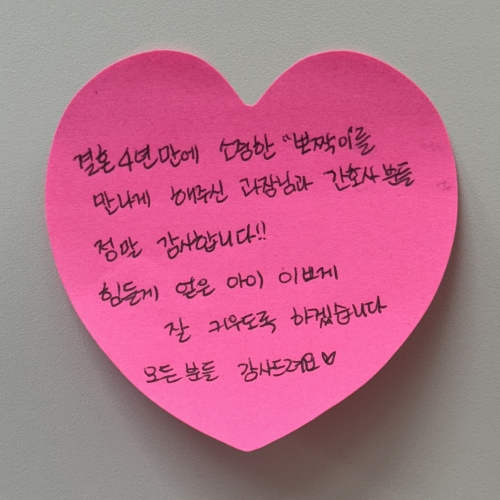 결혼 4년만에 소중한 "뽀짝이"를
만나게 해주신 과장님과 간호사분들
정말 감사합니다!!
힘들게 얻은 아이 이쁘게
잘 키우도록 하겠습니다
모든 분들 감사드려요♡